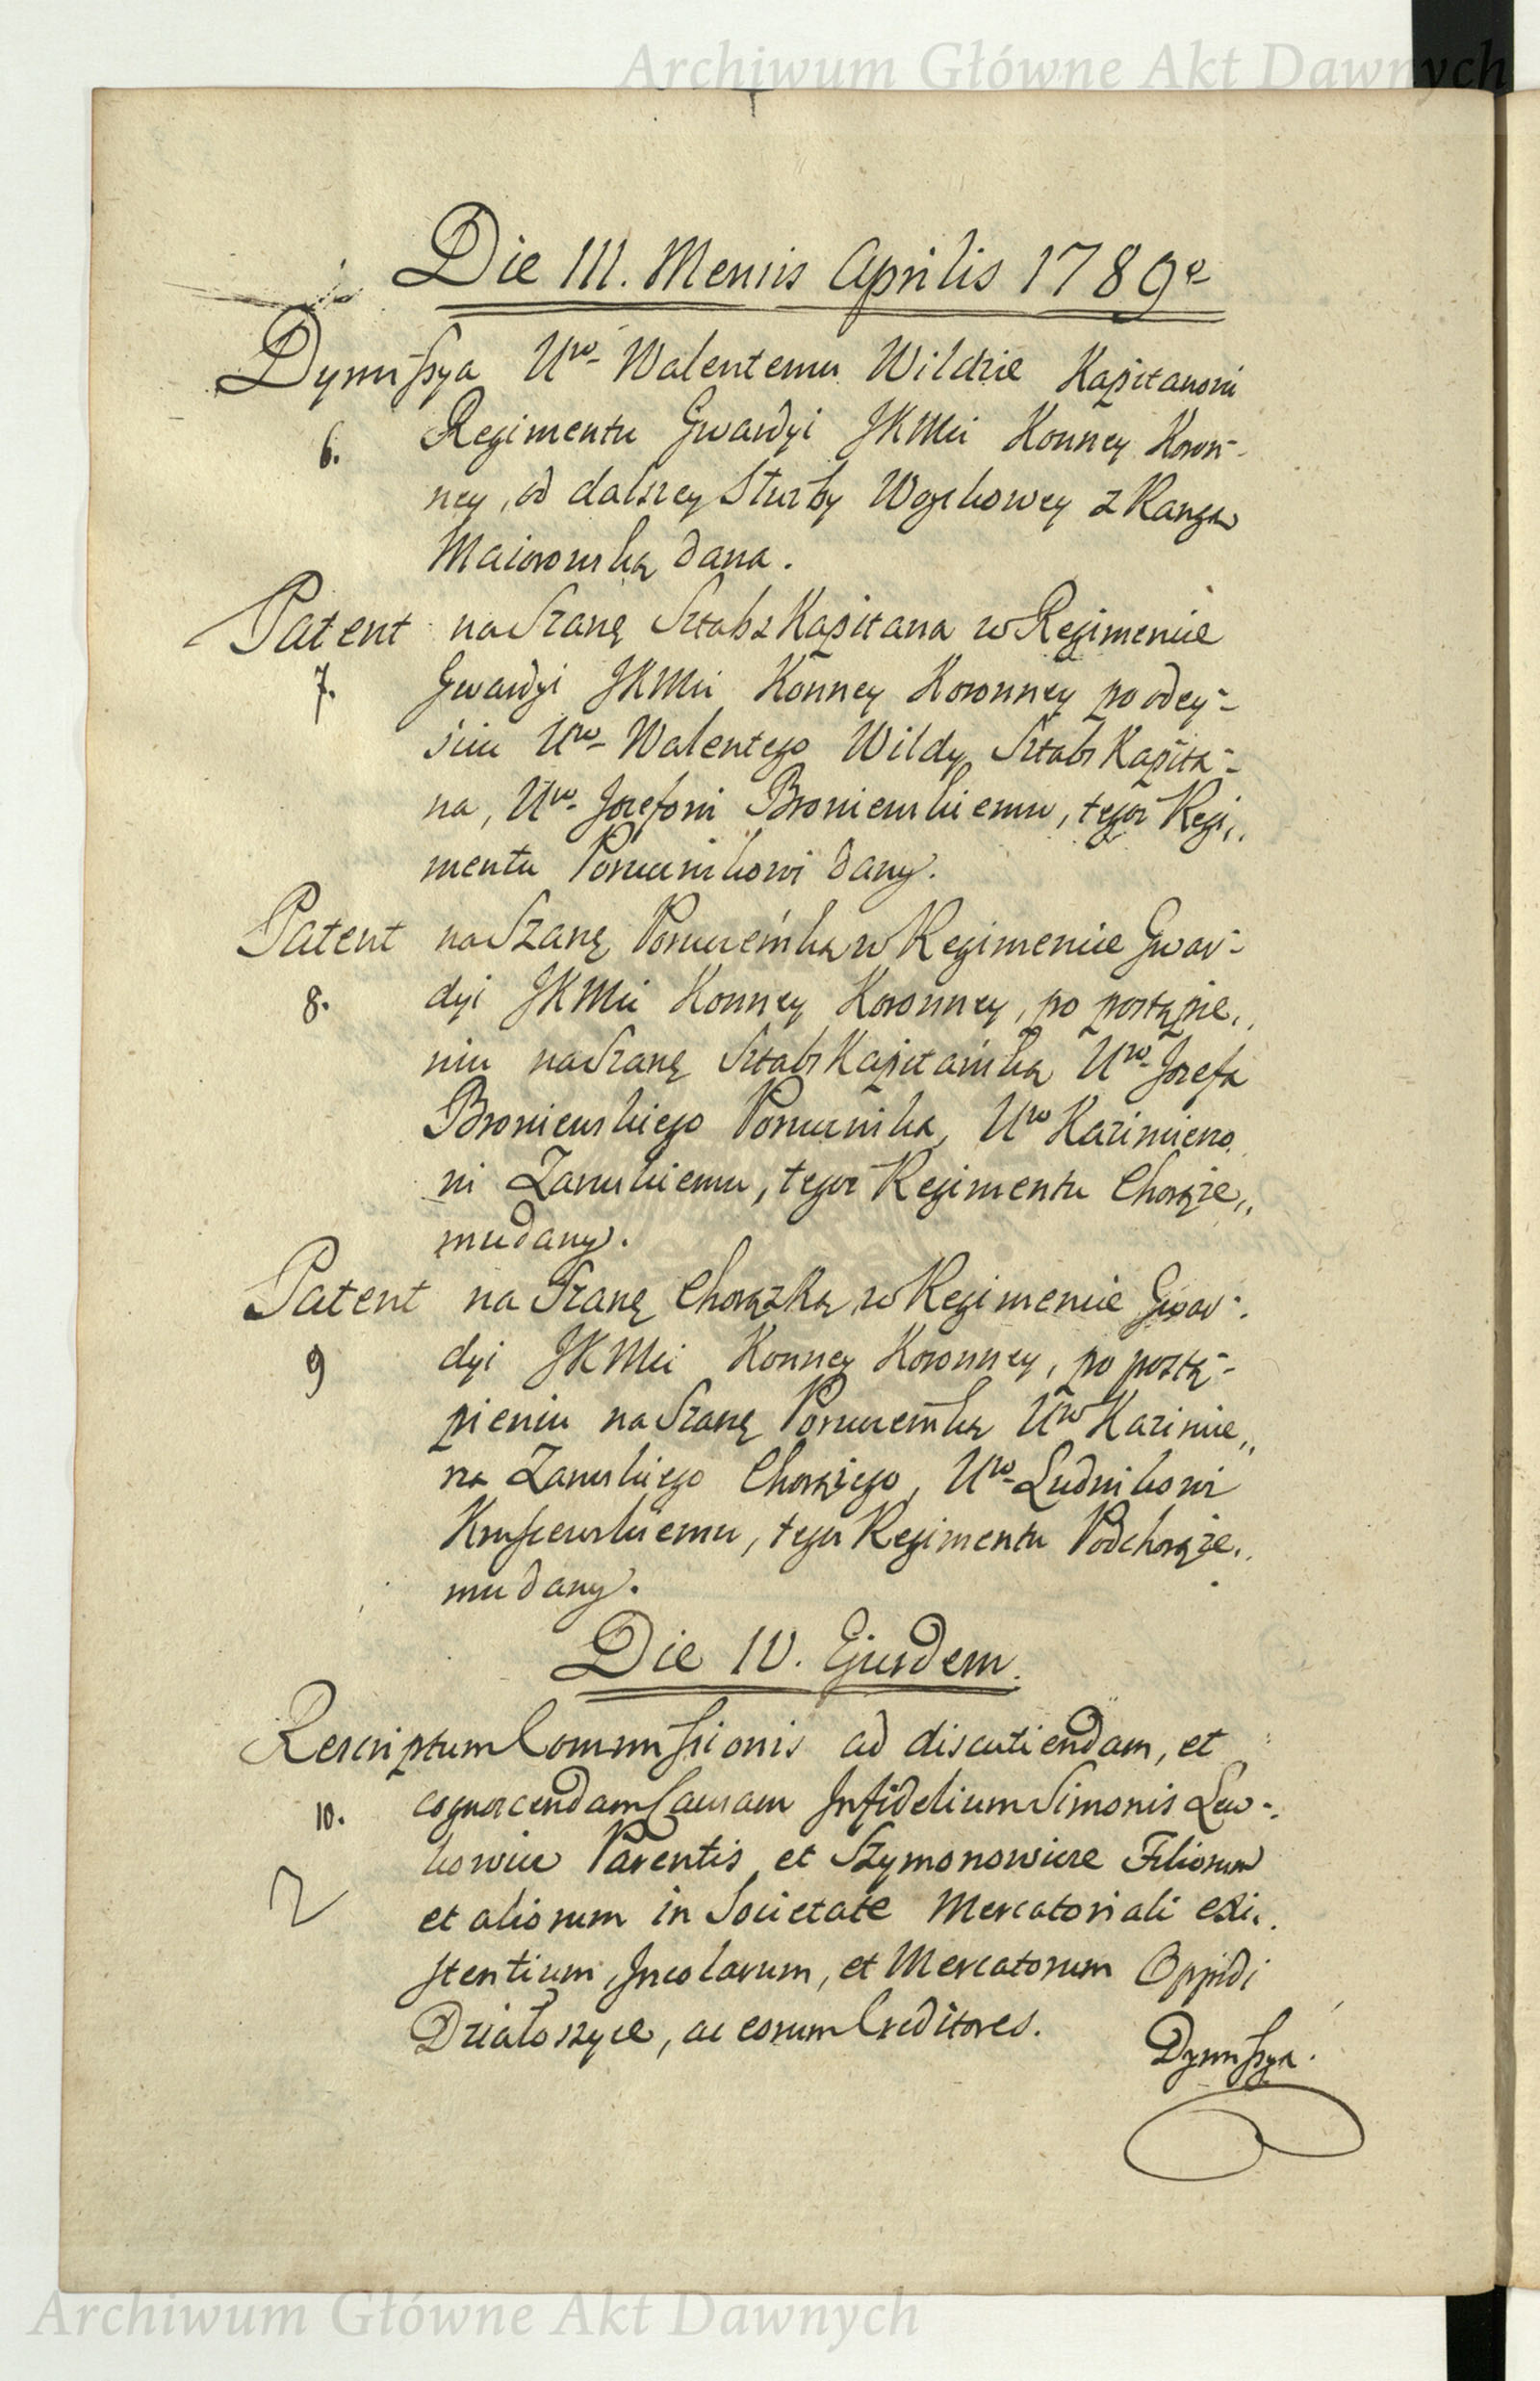 Archiwum Główne Akt Dawnych
Die III. Mensis Aprilis 1789°
Dymissya Uro- Walentemu Wildzie Kapitanowi
6. Regimentu Gwardyi JKMci Konney Koron-
ney, od dalszey Służby Woyskowey z Rangą
Maiorowską dana.
Patent na Szarżę Sztabs Kapitana w Regimencie
7. Gwardyi JKMci Konney Koronney po odey-
sciu Uro- Walentego Wildy Sztabs Kapita-
na, Uro- Jozefowi Broniewskiemu, tegoż Regi,,
mentu Porucznikowi dany.
Patent na Szarżę Porucznika w Regimencie Gwar-
8. dyi JKMci Konney Koronney, po postąpie,,
niu na Szarżę Sztabs Kapitańską Uro- Jozefa
Broniewskiego Porucznika, Uro Kazimierzo,,
wi Zarskiemu, tegoż Regimentu Chorąże,,
mu dany.
Patent na Szarżę Chorążką w Regimencie Gwar-
9 dyi JKMci Konney Koronney, po postą-
pieniu na Szarżę Uro Kazimie,,
rza Chorążego, Uro- Ludwikowi
tegoż Regimentu Podchorąże,,
mu dany.
Die IV. Ejusdem.
Rescriptum Commissionis ad discutiendam, et
10. cognoscendam Causam Infidelium Simonis Lew-
kowicz Parentis, et Szymonowicze Filiorum
et aliorum in Societate Mercatoriali exi,,
stentium, Incolarum, et Mercatorum Oppidi
Działoszyce, ac eorum Creditores.
Dymissya.
Archiwum Główne Akt Dawnych